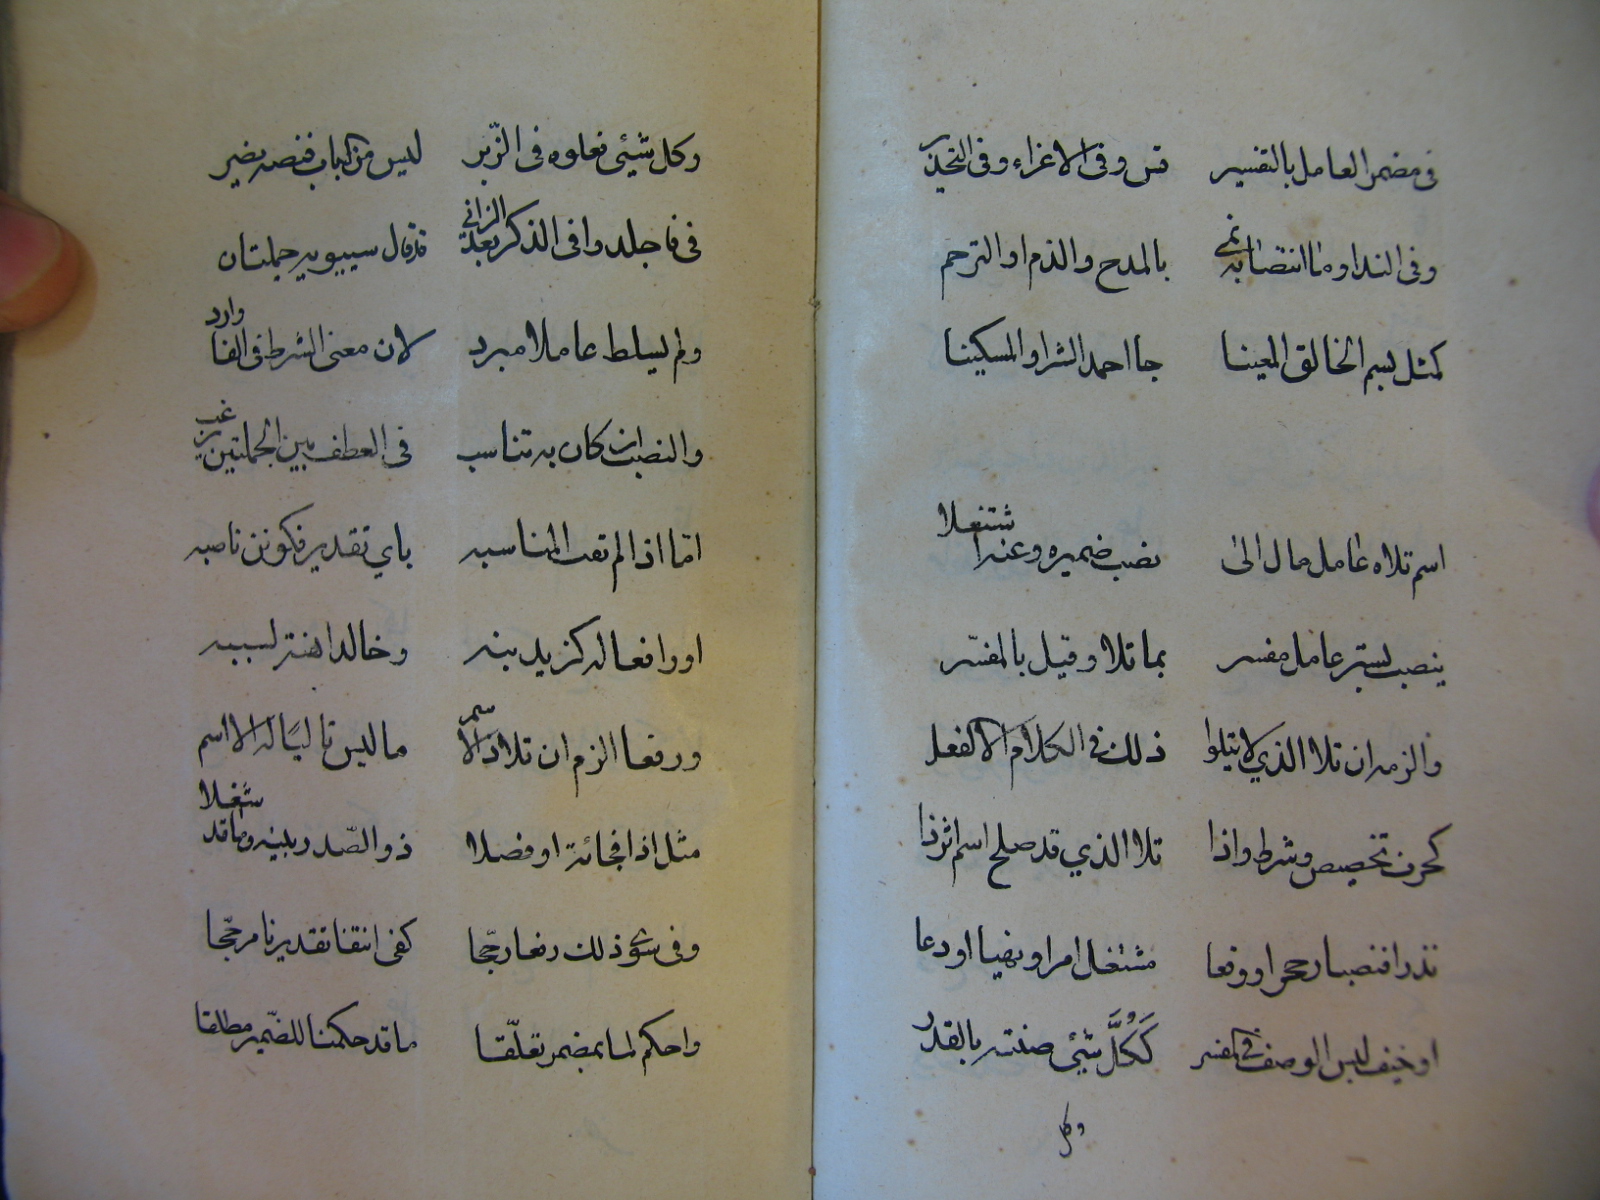 فى مضمر العامل بالتفسير قس وفى الاغراء وفى التحذير
وفى الندا وما انتصابه نمى بالمدح والذم او الترحم
كمثل بسم الخالق المعينا جا احمد الشرا والمسكينا
اسم تلاه عامل مال الى نصب ضميره وعنه اشتغلا
ينصب بستر عامل مفسر بما تلا وقيل بالمفسّر
والزمه ان تلا الذي لا يتلوا ذلك فى الكلام الا الفعل
كحرف تخصيص وشرط واذا تلا الذي قد صلح اسم اثر ذا
نذرا فنصبا رجح او وقعا مشتغل امرا ونهيا او دعا
او خيف لبس الوصف فى المفسر كَكُلَّ شيئ صنته بالقدر
وكل
وكل شيئ فعلوه فى الزّبر ليس من الباب فنصبه يضير
فى فاجلدوا فى الذكر بعد الزانى قد قال سيبويه جملتان
ولم يسلط عاملا مبرد لان معنى الشرط فى الفا وارد
والنصب ان كان به تناسب فى العطف بين الجملتين غب
امّا اذا لم تفت المناسبه باي تقدير فكونن ناصبه
او رافعا له كزيد بنه وخالدا هنته لسببه
ورفعا الزم ان تلا ذا الاسم ما ليس تاليا له الا اسم
مثل اذا فجائة او فصلا ذو الصّدر بينه وما قد شغلا
وفى سوى ذلك رفعا رجّحا كفى انتفا تقديرنا مرجّحا
واحكم لما بمضمر تعلّقا ما قد حكمنا للضّمير مطلقا